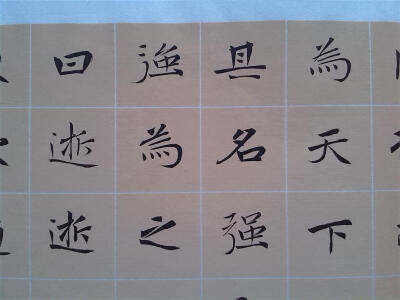 為天下
其名强
強為之
曰逝逝